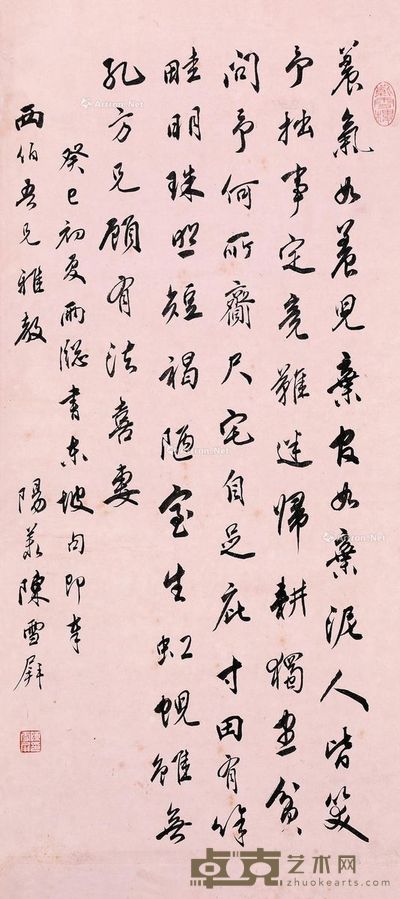 養氣如養兒棄官如棄泥人皆笑
予拙事定竟難迷歸耕獨患貧
問予何所齎尺宅自足庇寸田有餘
畦明珠照短褐陋室生虹蜺雖無
孔方兄顧有法喜妻
癸巳初夏雨牕書東坡句即奉
西伯吾兄雅教
陽羨陳雪屏
Artron.Net
卓克艺术网
www.zhuokearts.com